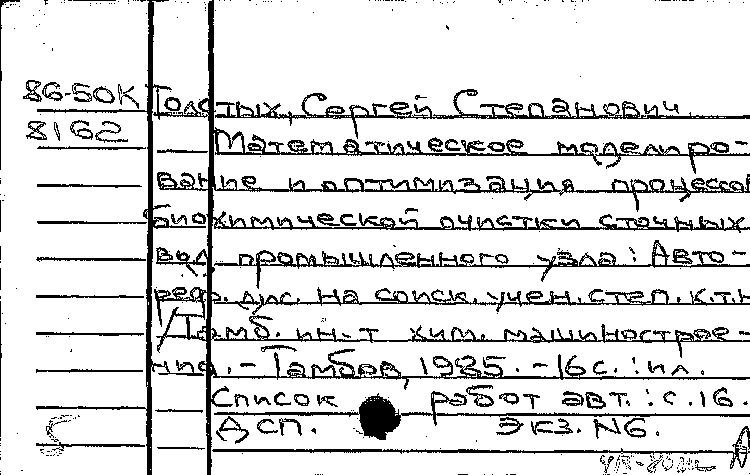 86-50К Толстых, Сергей Степанович.
8162 Математическое моделиро-
вание и оптимизация процессов
биохимической очистки сточных
вод промышленного узла: Авто-
реф. дис. на соиск. учен. степ. к.т.н
/Тамб. ин-т хим. машинострое-
ния. - Тамбов, 1985. - 16 с. : ил.
Список работ авт. : с. 16.
ДСП. Экз. N6.